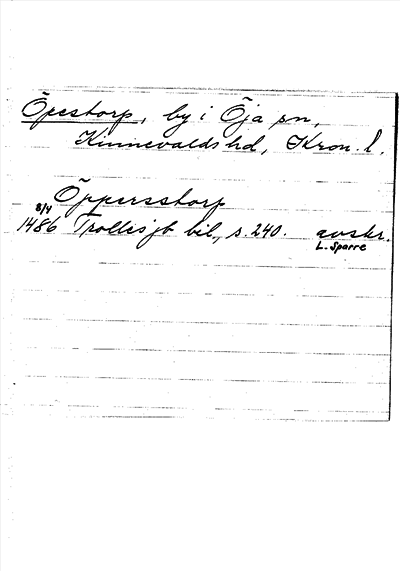 Öpestorp, by i Öja sn,
Kinnevalds hd, Kron. l.
Öppersstorp
8/4
1486 Trolles jb bil., s. 240. avskr.
L. Sparre